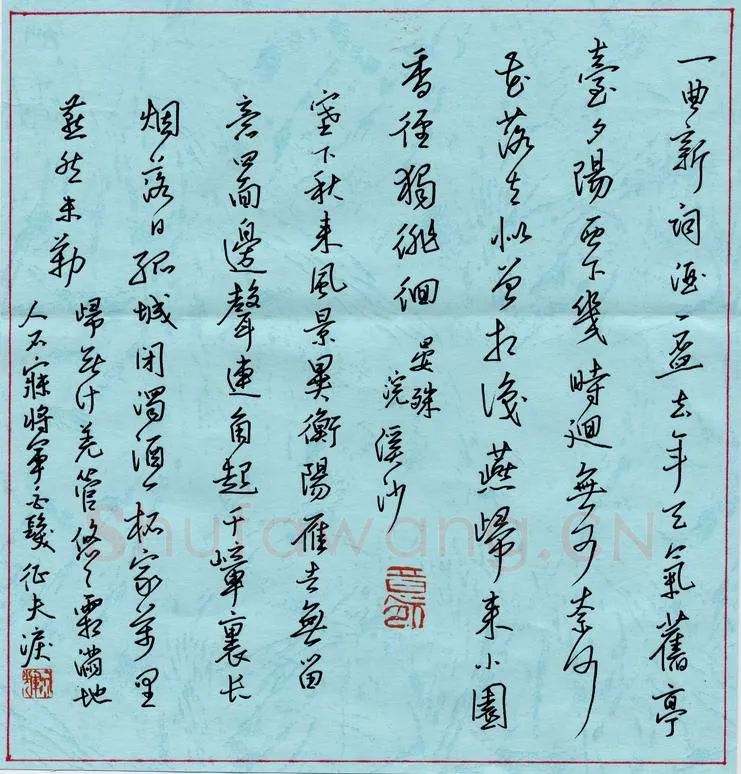 一曲新詞酒一盃去年天氣舊亭
臺夕陽西下幾時迴無可奈何
花落去似曾相識燕歸來小園
香徑獨徘徊
晏殊
浣溪沙
塞下秋來風景異衡陽雁去無留
意四面邊聲連角起千嶂裏長
烟落日孤城閉濁酒一杯家萬里
燕然未勒
歸無計羌管悠々霜滿地
人不寐將軍白髮征夫淚
Shufawang.CN